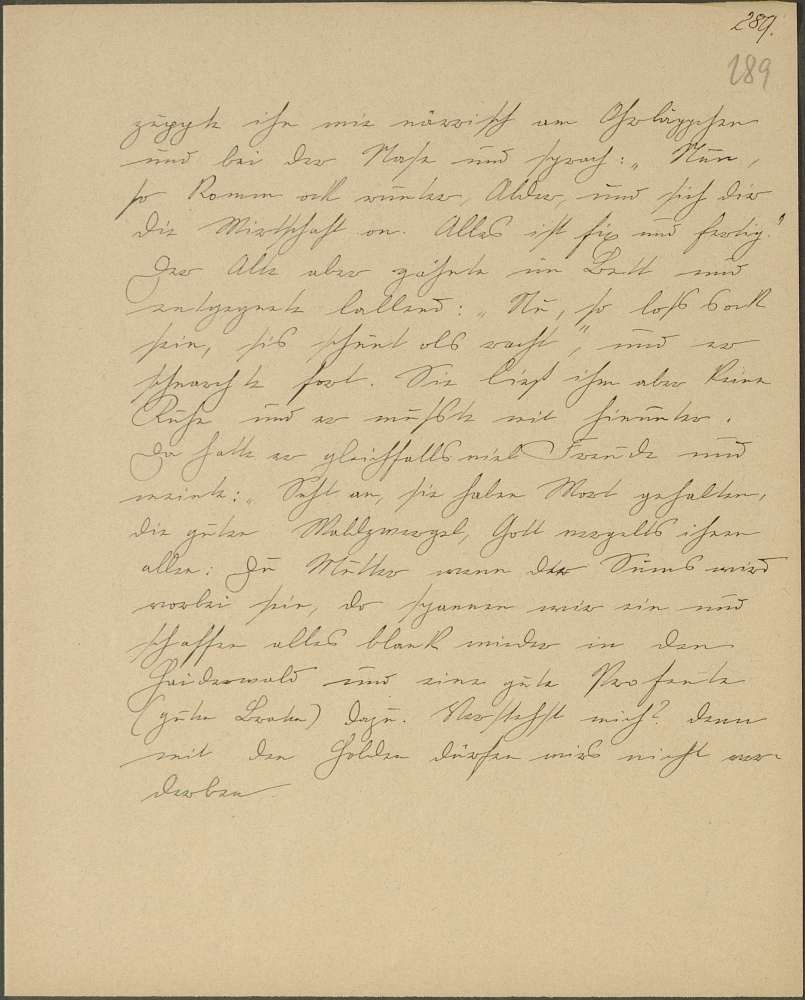 287.
189
zuppte ihn wie närrisch am Ohrläppchen
und bei der Nase und sprach: „Nun,
so komm ock runter, Alder, und sieh dir
die Wirtschaft on. Alles ist fix und fertig."
Der Alte aber gähnte im Bett und
entgegnete lallend: „Nu, so loß s ock
sein, sis schunt ols racht", und er
schnarchte fort. Sie ließ ihm aber keine
Ruhe und er mußte mit hinunter.
Da hatte er gleichfalls viel Freude und
meinte: „Seht an, sie haben Wort gehalten,
die guten Waldzwergel, Gott vergelts ihnen
allen: Du Mutter wenn der Sums wird
vorbei sein, do spannen wir ein und
schaffen alles blank wieder in den
Haiderwald und eine gute Profente
(gute Brote) dazu. Verstehst mich? denn
mit den Holden dürfen wirs nicht ver-
derben.